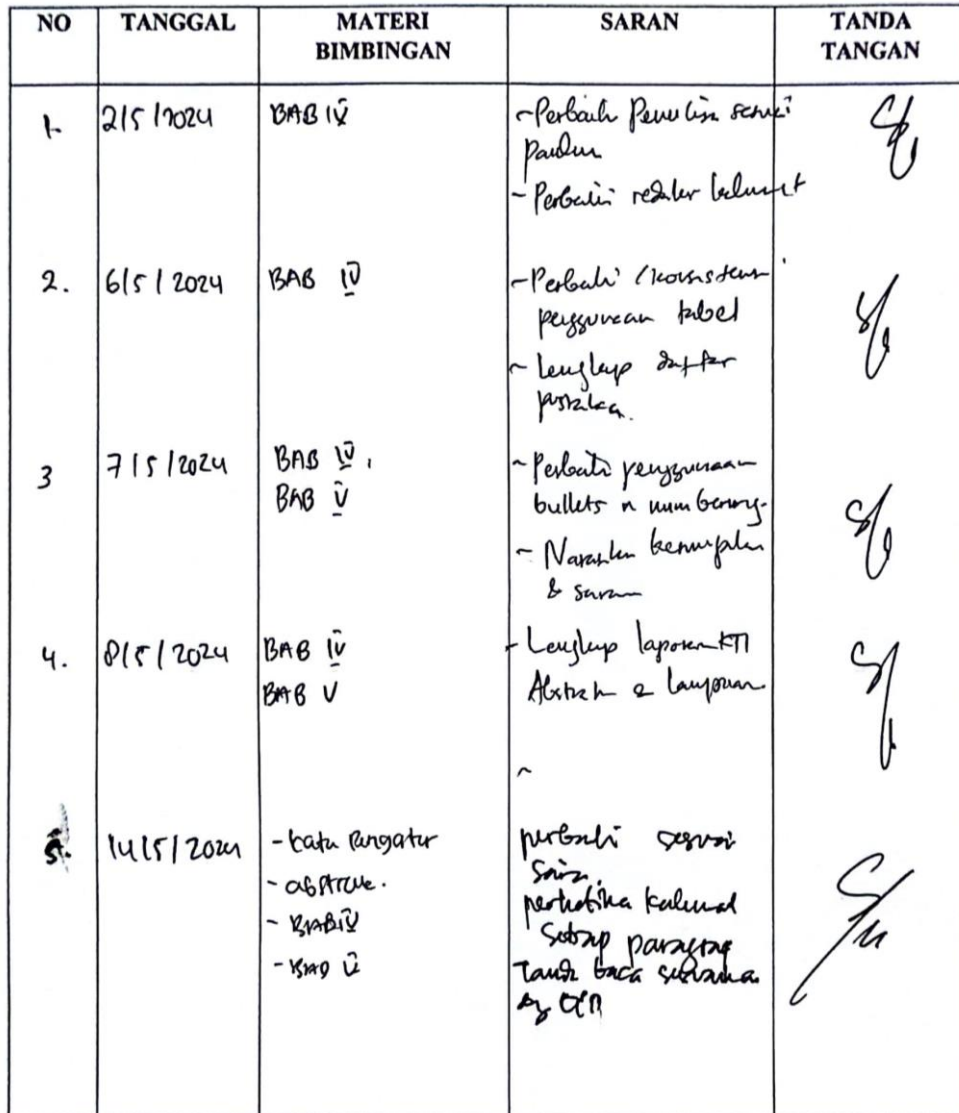 NO TANGGAL MATERI BIMBINGAN SARAN TANDA TANGAN
1. 2/5/2024 BAB IV - Perbaiki Penulisan sesuai
panduan
- Perbaiki redaksi kalimat
2. 6/5/2024 BAB IV - Perbaiki / konsistensi
penggunaan tabel
- Lengkap daftar
pustaka.
3 7/5/2024 BAB IV, - Perbaiki penggunaan
BAB V bullets n numbering.
- Narasikan kesimpulan
& saran
4. 8/5/2024 BAB IV - Lengkap laporan KTI
BAB V Abstrak & lampiran
5. 14/5/2024 - kata Pengatur perbaiki sesuai
- abstrak. saran.
- BAB IV perhatika kalimat
setiap paragrap
- BAB V Tanda baca